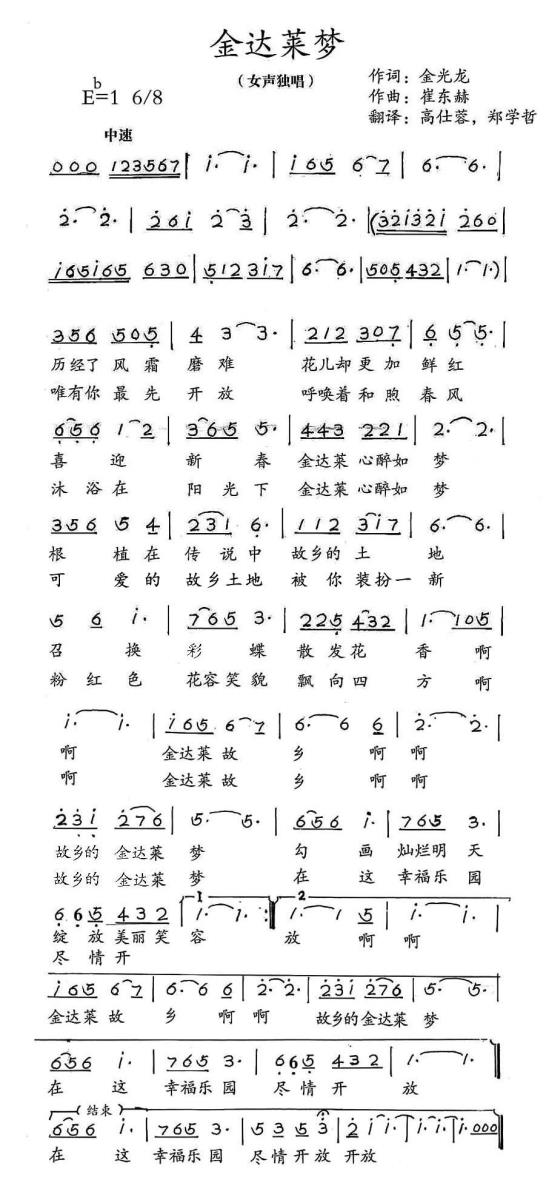 金达莱梦
（女声独唱）
作词：金光龙
作曲：崔东赫
翻译：高仕蓉，郑学哲
bE=1 6/8
中速
000 123567 | i· i· | i65 6 7 | 6· 6· |
2· 2· | 26i 2 3 | 2· 2· | (32i32i 260 |
i65i65 630 | 512 3i7 | 6· 6· | 505 432 | 1· 1·) |
356 505 | 4 3 3· | 212 307 | 6 5 5· |
历经了 风 霜 磨 难 花儿却 更 加 鲜 红
唯有你 最 先 开 放 呼唤着 和 煦 春 风
656 1 2 | 365 5· | 443 221 | 2· 2· |
喜 迎 新 春 金达莱 心醉如 梦
沐 浴在 阳 光 下 金达莱 心醉如 梦
356 5 4 | 231 6· | 112 3i7 | 6· 6· |
根 植在 传 说中 故乡的 土 地
可 爱的 故乡土地 被 你 装扮一 新
5 6 i· | 765 3· | 225 432 | 1· 105 |
召 换 彩 蝶 散 发花 香 啊
粉 红 色 花容笑 貌 飘 向四 方 啊
i· i· | i65 6 7 | 6· 6 6 | 2· 2· |
啊 金达莱 故 乡 啊 啊
啊 金达莱 故 乡 啊 啊
23i 276 | 5· 5· | 656 i· | 765 3· |
故乡的 金达莱 梦 勾 画 灿烂明 天
故乡的 金达莱 梦 在 这 幸福乐 园
665 432 | 1 i· i· :‖ 2 1· 1 5 | i· i· |
绽 放 美丽 笑 容 放 啊 啊
尽 情 开
i65 6 7 | 6· 6 6 | 2· 2· | 23i 276 | 5· 5· |
金达莱 故 乡 啊 啊 故乡的 金达莱 梦
656 i· | 765 3· | 665 432 | 1· 1· ‖
在 这 幸福乐 园 尽 情 开 放
（结束）
656 i· | 765 3· | 53 53 | 2 i i | i i | i 000 ‖
在 这 幸福乐 园 尽 情 开 放 开放